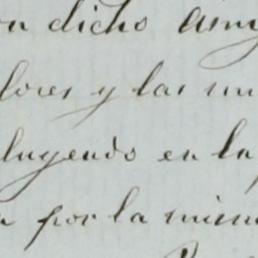 on dicho
lores y las mu
luyendo en la
por la mism